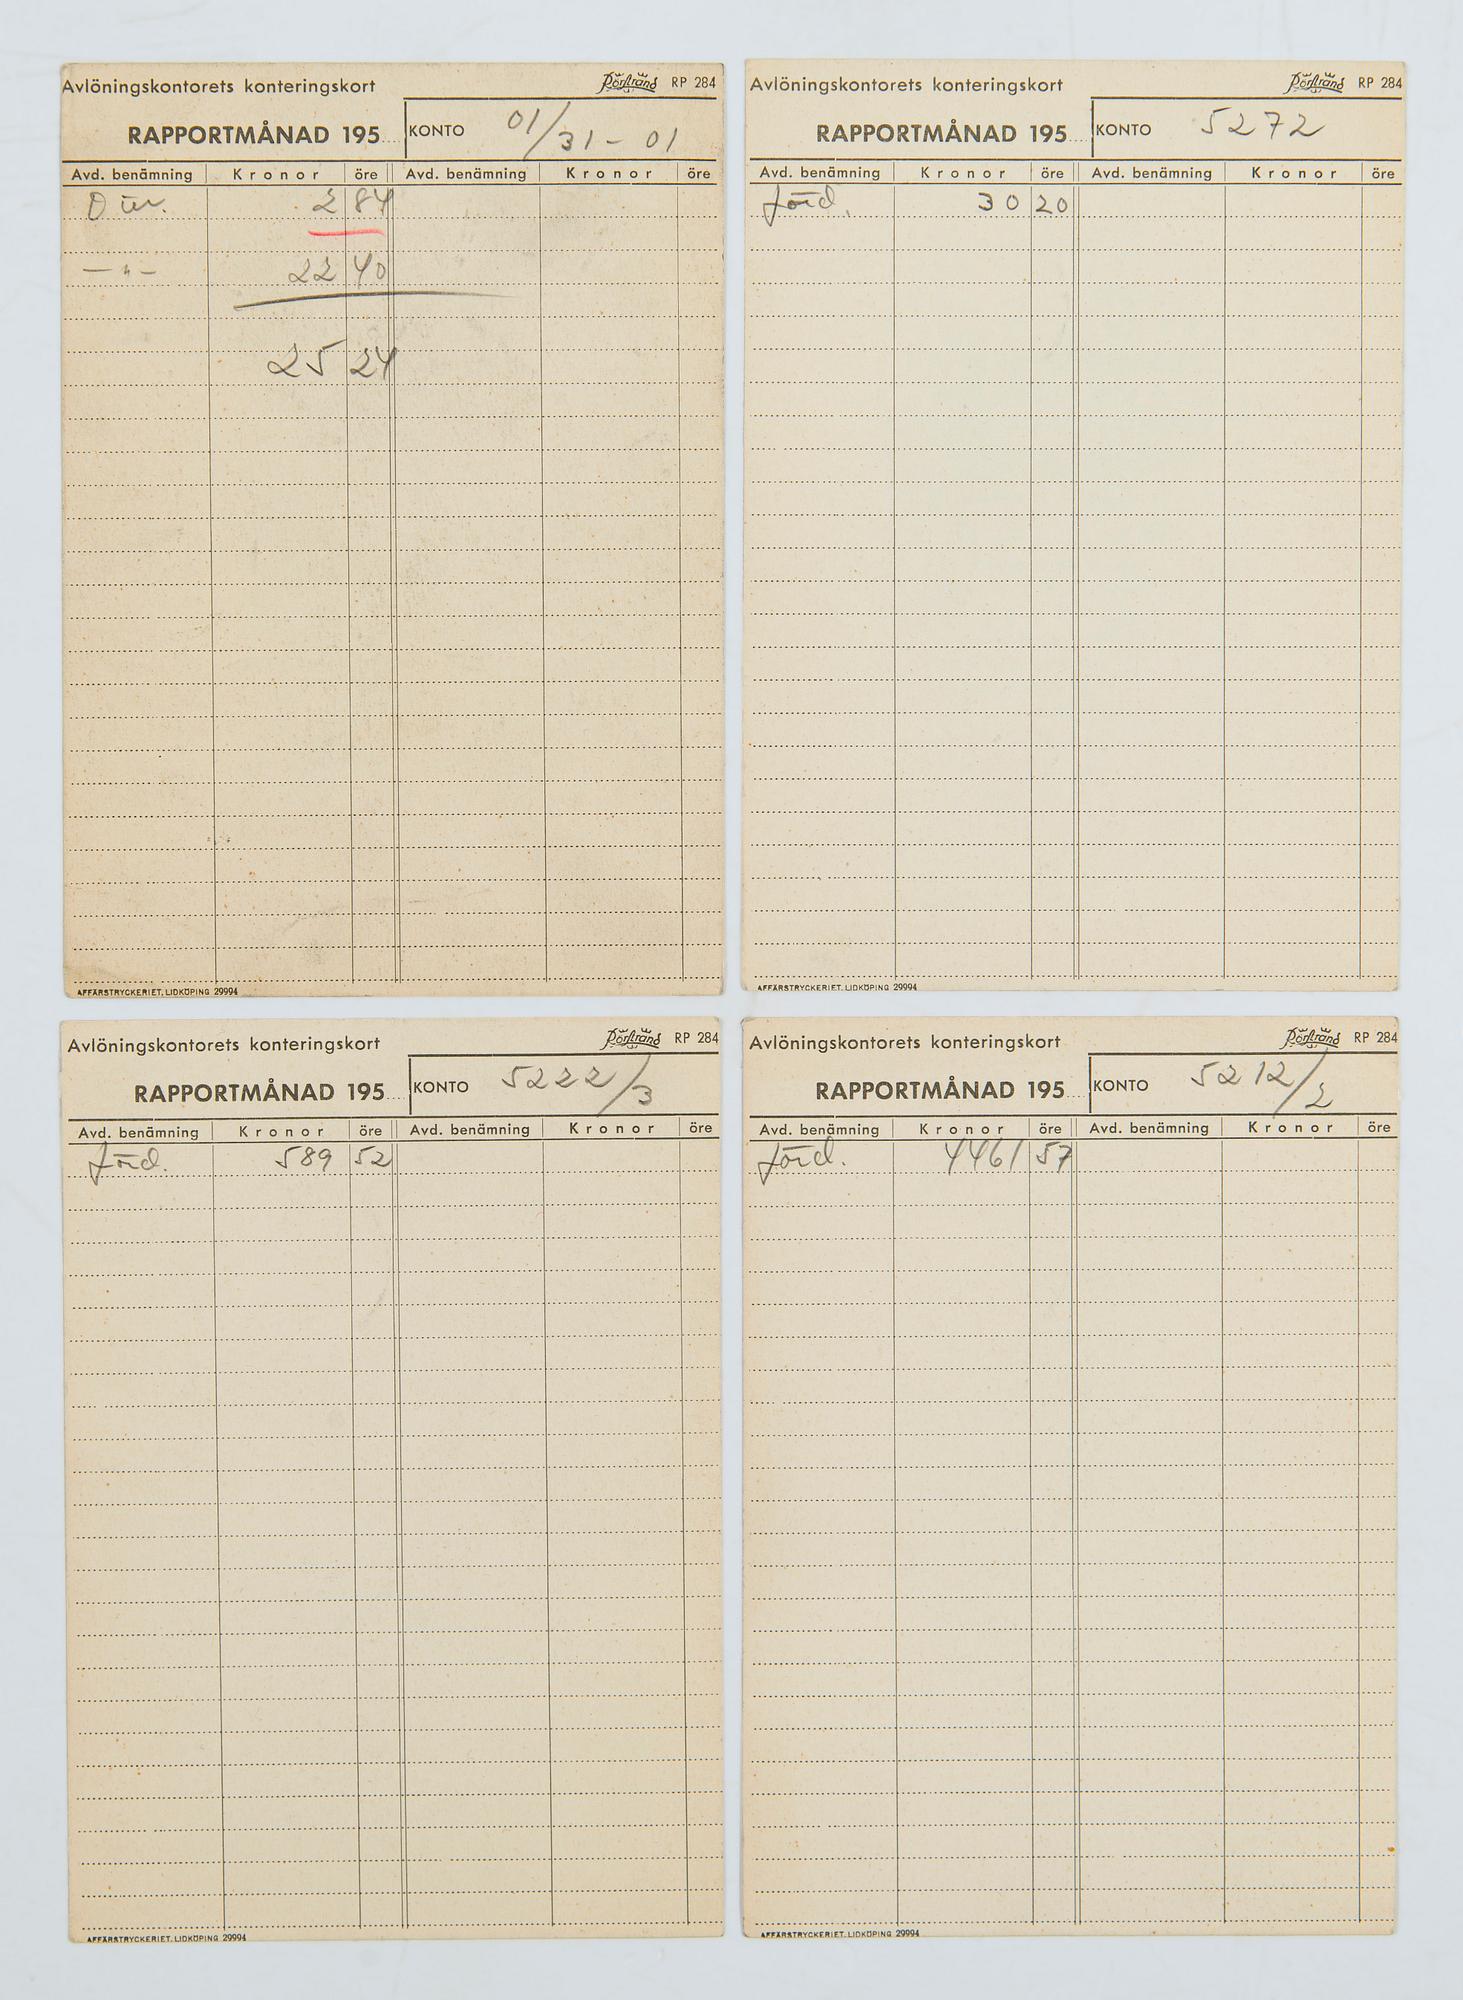 Avlöningskontorets konteringskort Rörstrand RP 284
RAPPORTMÅNAD 195 KONTO 01/31-01
Avd. benämning Kronor öre Avd. benämning Kronor öre
2 84
— " — 22 40
25 24
AFFÄRSTRYCKERIET, LIDKÖPING 29994
Avlöningskontorets konteringskort Rörstrand RP 284
RAPPORTMÅNAD 195 KONTO 5272
Avd. benämning Kronor öre Avd. benämning Kronor öre
förd. 30 20
AFFÄRSTRYCKERIET, LIDKÖPING 29994
Avlöningskontorets konteringskort Rörstrand RP 284
RAPPORTMÅNAD 195 KONTO 5222/3
Avd. benämning Kronor öre Avd. benämning Kronor öre
förd. 589 52
AFFÄRSTRYCKERIET, LIDKÖPING 29994
Avlöningskontorets konteringskort Rörstrand RP 284
RAPPORTMÅNAD 195 KONTO 5212/2
Avd. benämning Kronor öre Avd. benämning Kronor öre
förd. 4461 57
AFFÄRSTRYCKERIET, LIDKÖPING 29994